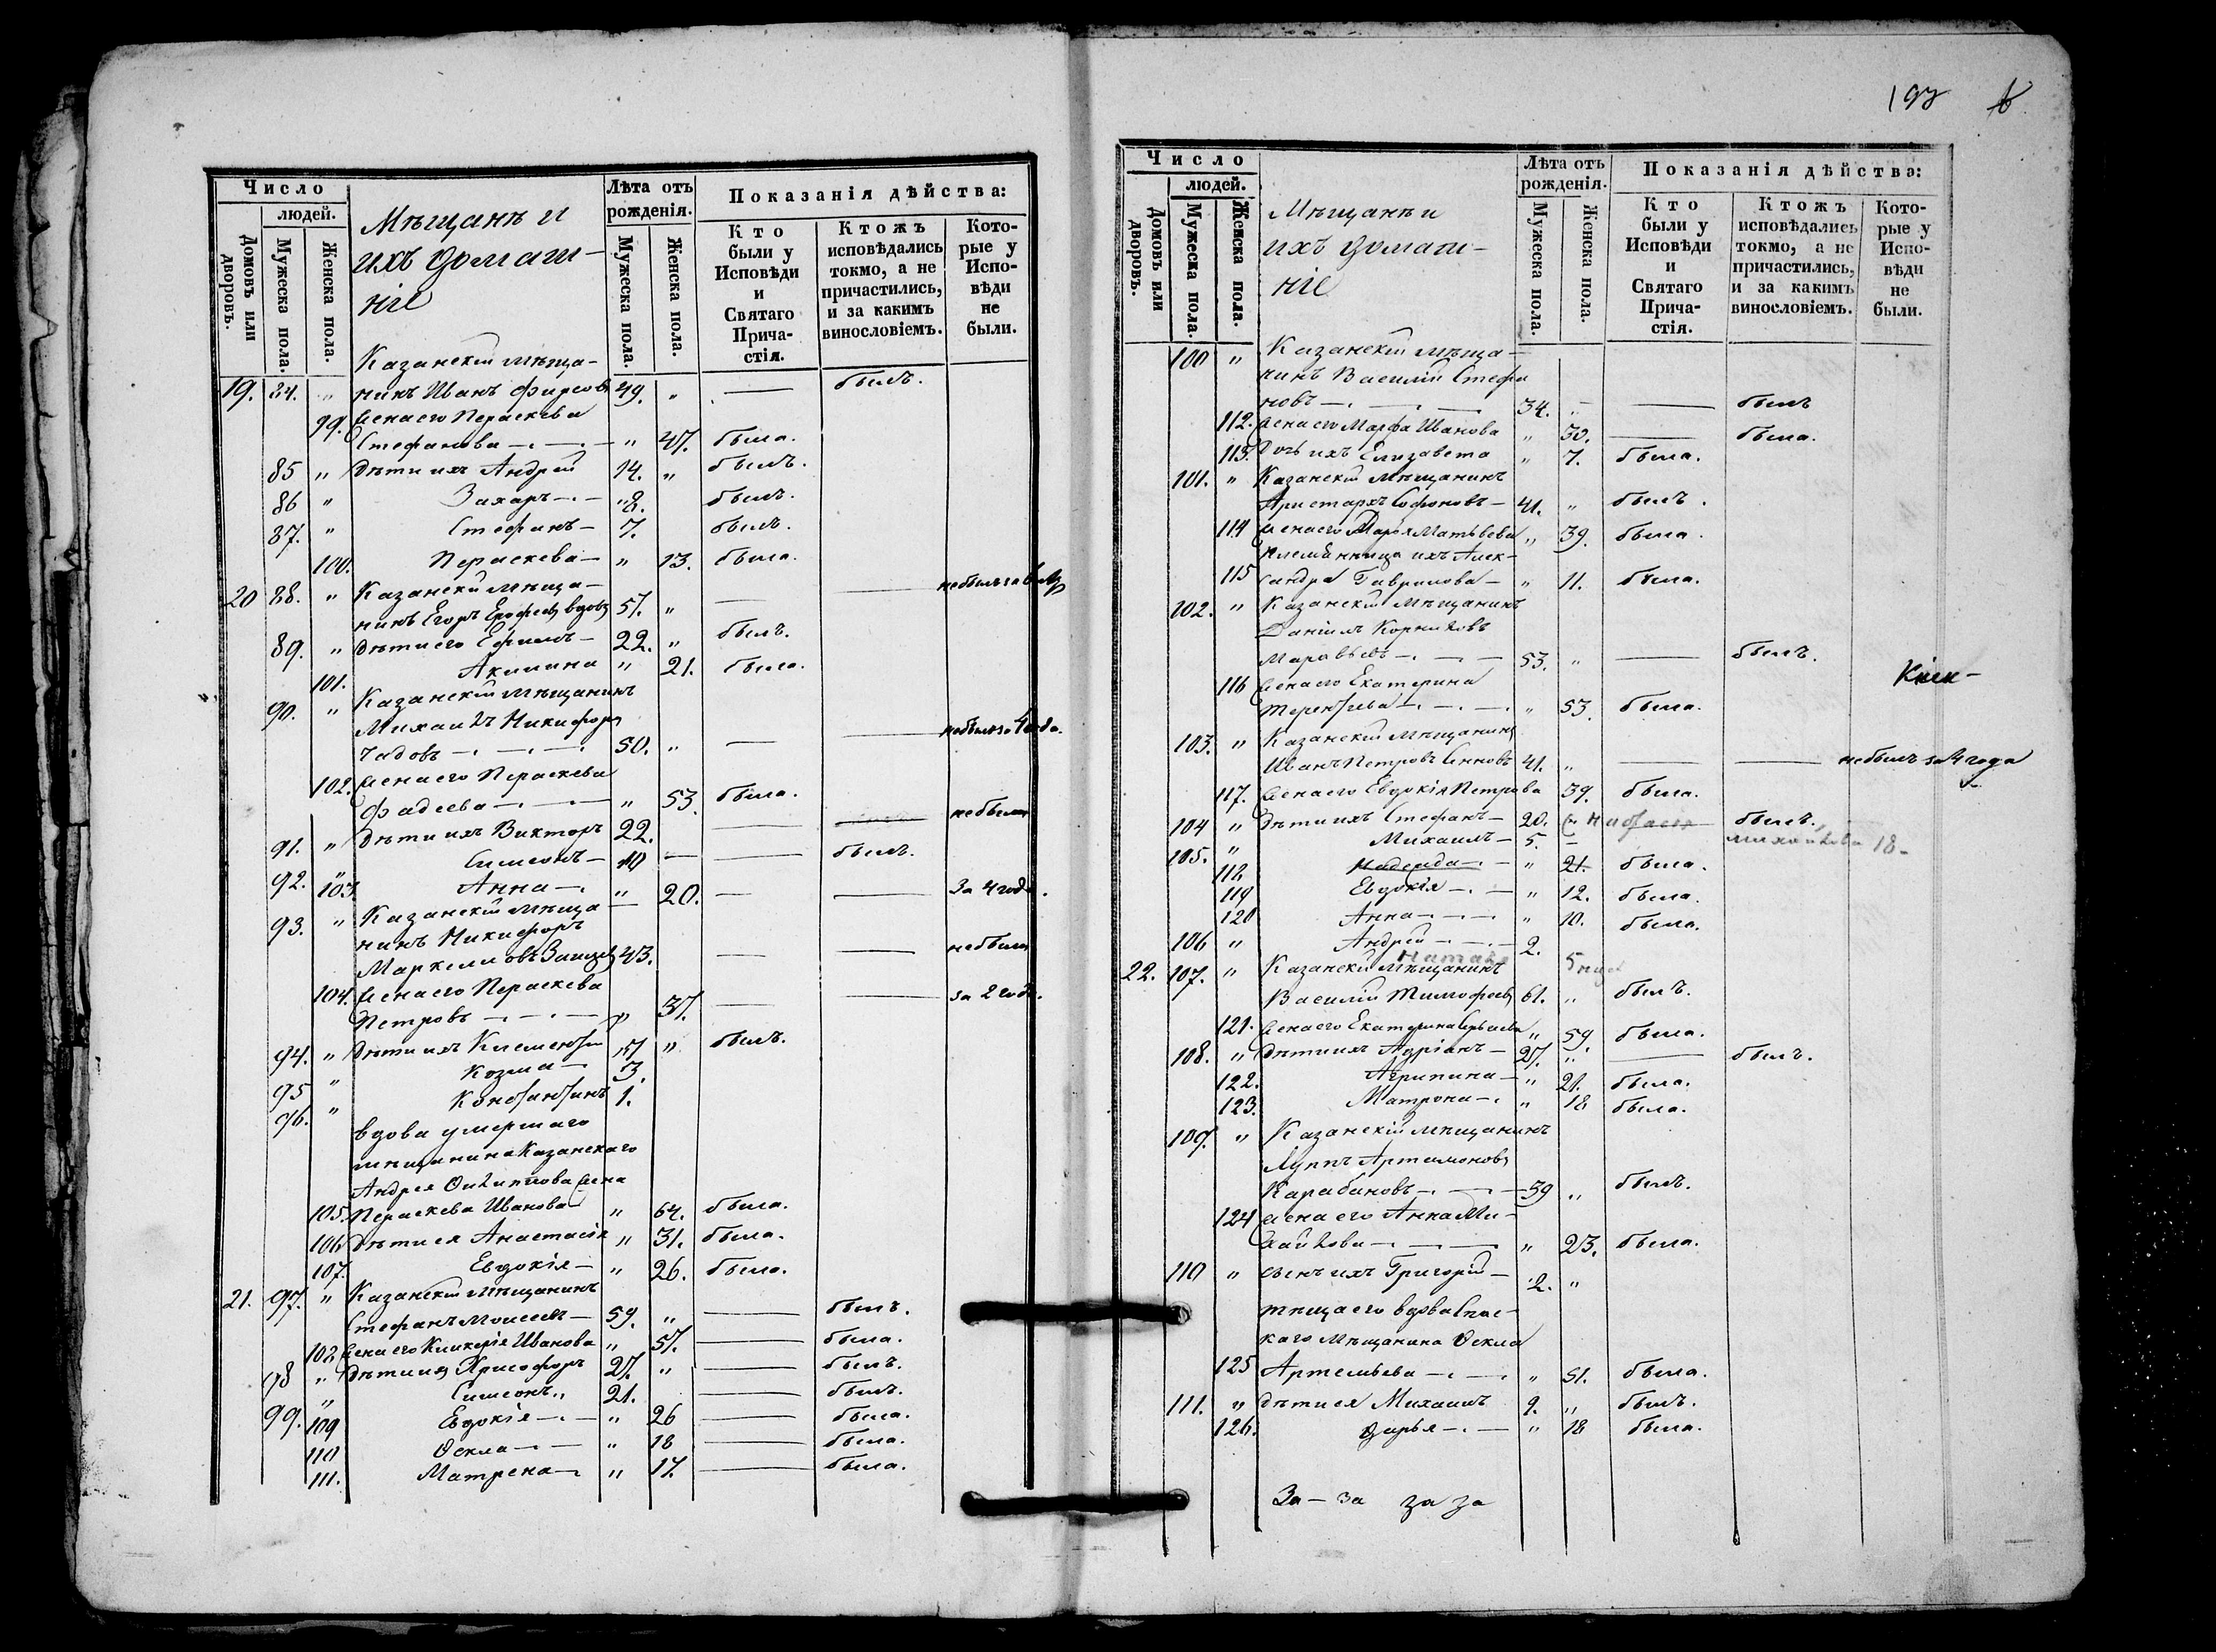 Число
людей.
Домовъ или дворовъ.
Мужеска пола.
Женска пола.
Мѣщанъ и
ихъ домаш-
ніе
Лѣта отъ
рожденія.
Мужеска пола.
Женска пола.
Показанія дѣйства:
Кто были у Исповѣди и Святаго Прича-стія.
Ктожъ исповѣдались токмо, а не причастились, и за какимъ винословіемъ.
Кото-рые у Испо-вѣди не были.
Казанскій мѣща-
19. 84. „ нинъ Иванъ Фирсовъ 49. „ — былъ.
99. Жена его Параскева
Стефанова — „ 47. была.
85 „ Дѣти ихъ Андрей 14. „ былъ.
86 „ Захаръ — „ 8. былъ.
87. „ Стефанъ — 7. былъ.
100. Параскева — „ 13. была.
20 88. „ Казанскій мѣща-
нинъ Егоръ Ерофеевъ вдовъ 57. „ — — небылъ за
89. „ Дѣти его Ефимъ — 22. „ былъ.
101. Акилина „ 21. была.
90. „ Казанскій мѣщанинъ
Михаилъ Никифоръ
Чадовъ — 50. „ — — небылъ за 4 года.
102. Жена его Параскева
Фадеева — „ 53. была.
91. „ Дѣти ихъ Викторъ 22. — — небыли
92. „ Симеонъ — 10 — — былъ.
103. Анна — „ 20. — — За 4 года.
93. „ Казанскій мѣща —
нинъ Никифоръ
Маркелловъ 43. — — небыли
104. Жена его Параскева
Петровъ — „ 37. — — за 2 года.
94. „ Дѣти ихъ Климентій „ былъ.
95 „ Козма — 3.
96. „ Константинъ 1.
вдова умершаго
мѣщанина Казанскаго
Андрея Филиппова жена
105. Параскева Иванова „ 64. была.
106. Дѣти ея Анастасія „ 31. была.
107. Евдокія — „ 26. была.
21. 97. „ Казанскій мѣщанинъ
Стефанъ Моисеевъ — 59. „ — былъ.
Жена его Гликерія Иванова „ 57. — была.
98 „ Дѣти ихъ Христофоръ 27. „ — былъ.
99. „ Симеонъ „ 21. — былъ.
109 Евдокія — „ 26 — была.
110 Ѳекла — „ 18 — была.
111. Матрена — „ 17. — была.
197
Число
людей.
Домовъ или дворовъ.
Мужеска пола.
Женска пола.
Мѣщанъ и
ихъ домаш-
ніе
Лѣта отъ
рожденія.
Мужеска пола.
Женска пола.
Показанія дѣйства:
Кто были у Исповѣди и Святаго Прича-стія.
Ктожъ исповѣдались токмо, а не причастились, и за какимъ винословіемъ.
Кото-рые у Испо-вѣди не были.
100 „ Казанскій мѣща —
нинъ Василій Стефа
новъ — 34. „ — былъ
112. Жена его Марфа Иванова „ 30. — была.
113. Дочь ихъ Елизавета „ 7. была.
101. „ Казанскій мѣщанинъ
Аристархъ Софоновъ — 41. „ былъ.
114 Жена его Марья Матвѣева „ 39. была.
племянница ихъ Алек-
115 сандра Гаврилова — „ 11. была.
102. „ Казанскій мѣщанинъ
Даніилъ Корниловъ
— 53. „ — былъ.
116 Жена его Екатерина
Терентьева — „ 53. была.
103. „ Казанскій мѣщанинъ
Иванъ Петровъ 41. „ — — небылъ за 4 года
117. Жена его Евдокія Петрова 39. была.
104 „ Дѣти ихъ Стефанъ — 20. былъ.
105. „ Михаилъ — 5. — Михайлова 18 —
118 Надежда — „ 21. была.
119 Евдокія — „ 12. была.
120 Анна — „ 10. была.
106 „ Андрей — 2.
22. 107. „ Казанскій мѣщанинъ
Василій Тимофеевъ 61. „ былъ.
121. Жена его Екатерина „ 59 была.
108. „ Дѣти ихъ Адріанъ — 27. „ — былъ.
122. Агрипина — „ 21. была.
123. Матрона — „ 18 была.
109. „ Казанскій мѣщанинъ
Луппъ Артамоновъ
Карабановъ — 39 „ былъ.
124 Жена его Анна Ми-
хайлова — „ 23. была.
110 „ сынъ ихъ Григорій — 2. „
тѣща его вдова Спас-
каго мѣщанина Ѳекла
125 Артемьева — „ 51. была.
111. „ Дѣти ея Михаилъ 9. „ былъ.
126. Дарья — „ 18 была.
За — за за за